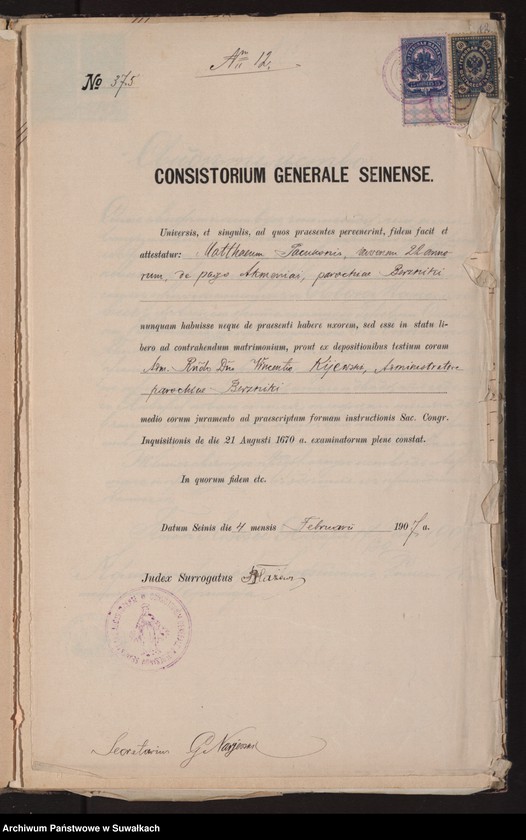 № 375
CONSISTORIUM GENERALE SEINENSE.
Universis, et singulis, ad quos praesentes pervenerint, fidem facit et
attestatur: Matthaeum annorum 22 anno
rum, de pago Akmeniai, parochiae Berzniki
nunquam habuisse neque de praesenti habere uxorem, sed esse in statu li-
bero ad contrahendum matrimonium, prout ex depositionibus testium coram
Adm. Rndo Dno Vincentio Kijewski, Administratore
parochiae Berzniki
medio eorum juramento ad praescriptam formam instructionis Sac. Congr.
Inquisitionis de die 21 Augusti 1670 a. examinatorum plene constat.
In quorum fidem etc.
Datum Seinis die 4 mensis Februarii 1907 a.
Judex Surrogatus
Secretarius G.
Archiwum Państwowe w Suwałkach